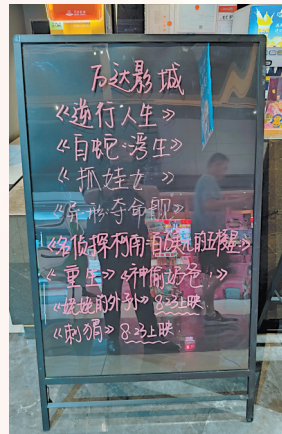 万达影城
《逆行人生》
《白蛇:浮生》
《抓娃娃》
《异形:夺命舰》
《名侦探柯南:百万美元的五棱星》
《重生》《神偷奶爸4》
《姥姥的外孙》8.23上映
《刺猬》8.23上映